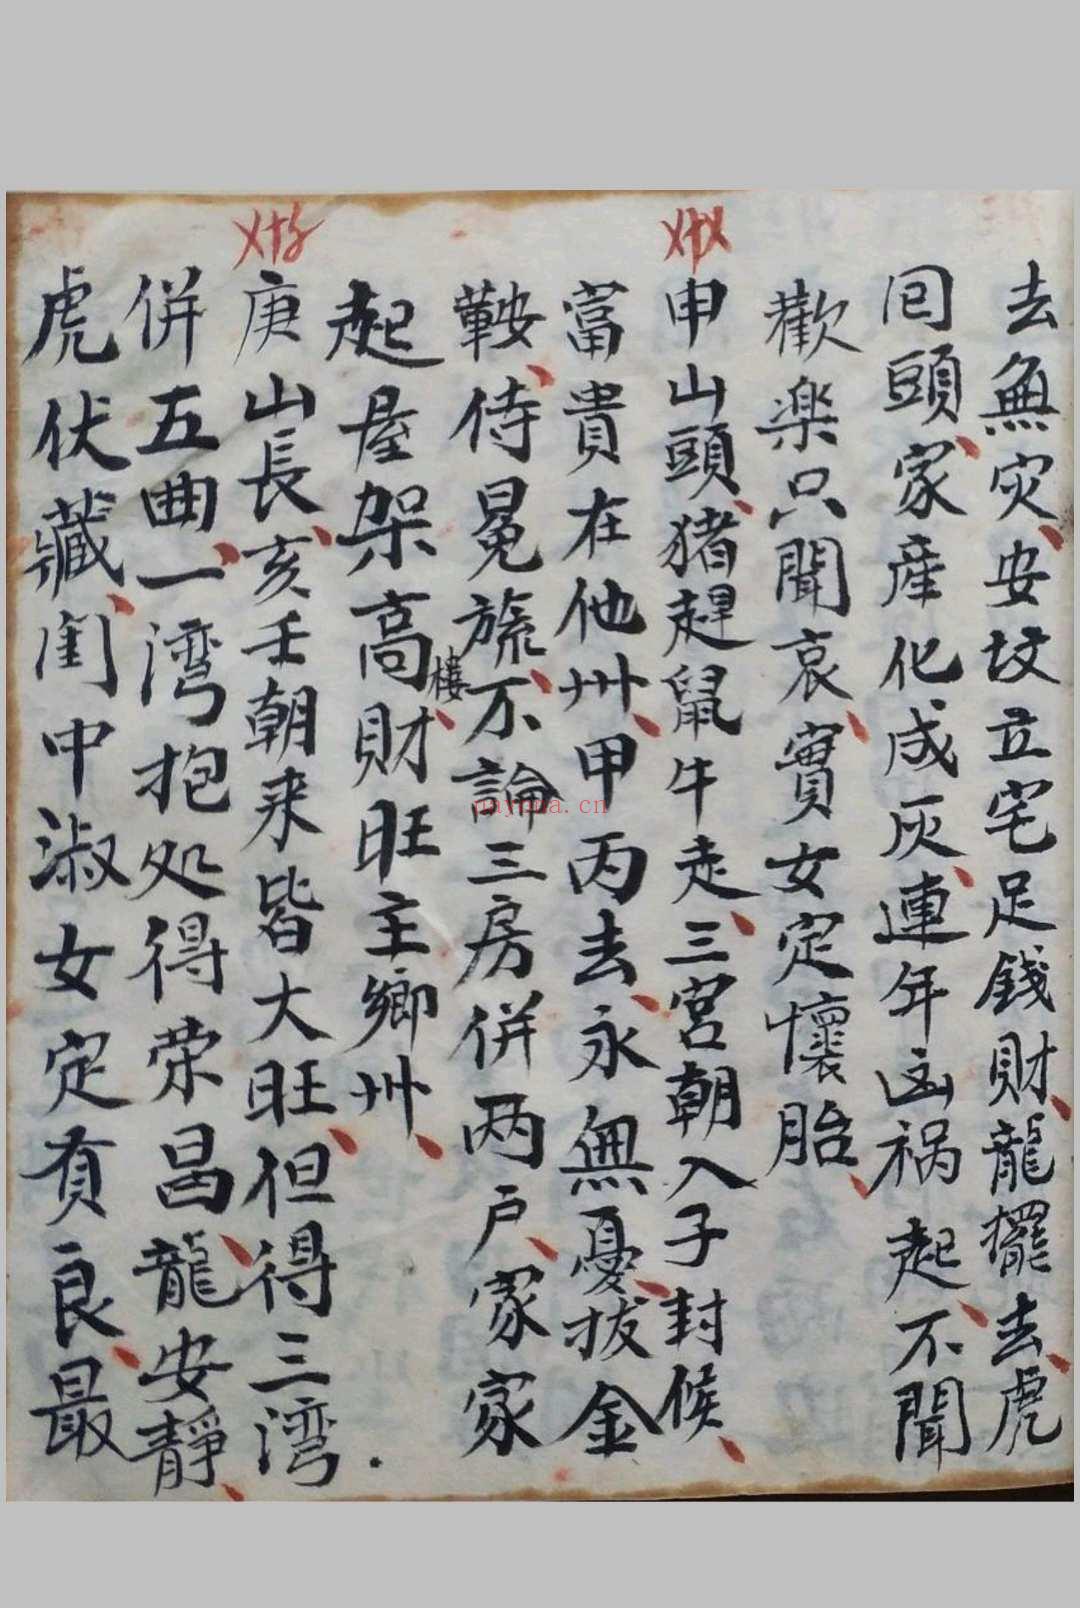 去無灾安坟立宅足錢財龍擺去虎
回頭家產化成灰連年凶祸起不聞
歡楽只聞哀實女定懷胎
申山頭猪趕鼠牛走三宮朝入子封候
富貴在他州甲丙去永無憂拔金
鞍侍冕旒不論三房併两户家家
起屋架高樓財旺主鄉州
庚山長亥壬朝来皆大旺但得三湾
併五曲一湾抱処得荣昌龍安靜
虎伏藏闺中淑女定有良最